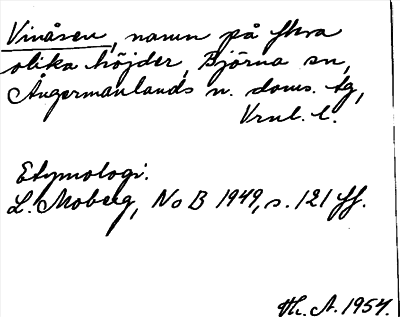 Vinåsen, namn på flera
olika höjder, Björna sn,
Ångermanlands n. doms. tg,
Vrnl. l.
Etymologi:
L. Moberg, NoB 1949, s. 121 ff.
Th. A. 1954.